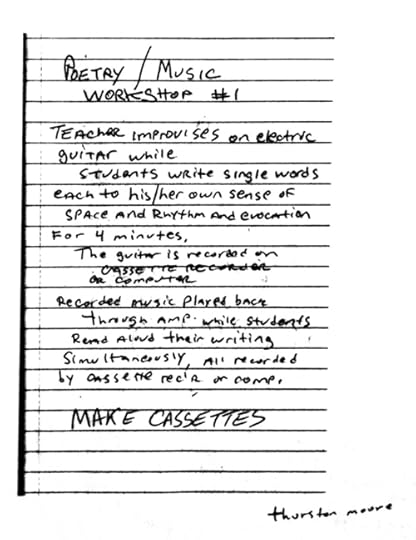 POETRY / MUSIC
WORKSHOP #1
TEACHER IMPROVISES on electric
guitar while
STUDENTS WRITE single words
EACH to his/her own sense of
SPACE and Rhythm and evocation
For 4 minutes.
The guitar is recorded on
CASSETTE RECORDER
or COMPUTER
Recorded music played back
through AMP. while students
Read Aloud their writing
Simultaneously, All recorded
by CASSETTE rec'r or comp.
MAKE CASSETTES
thurston moore